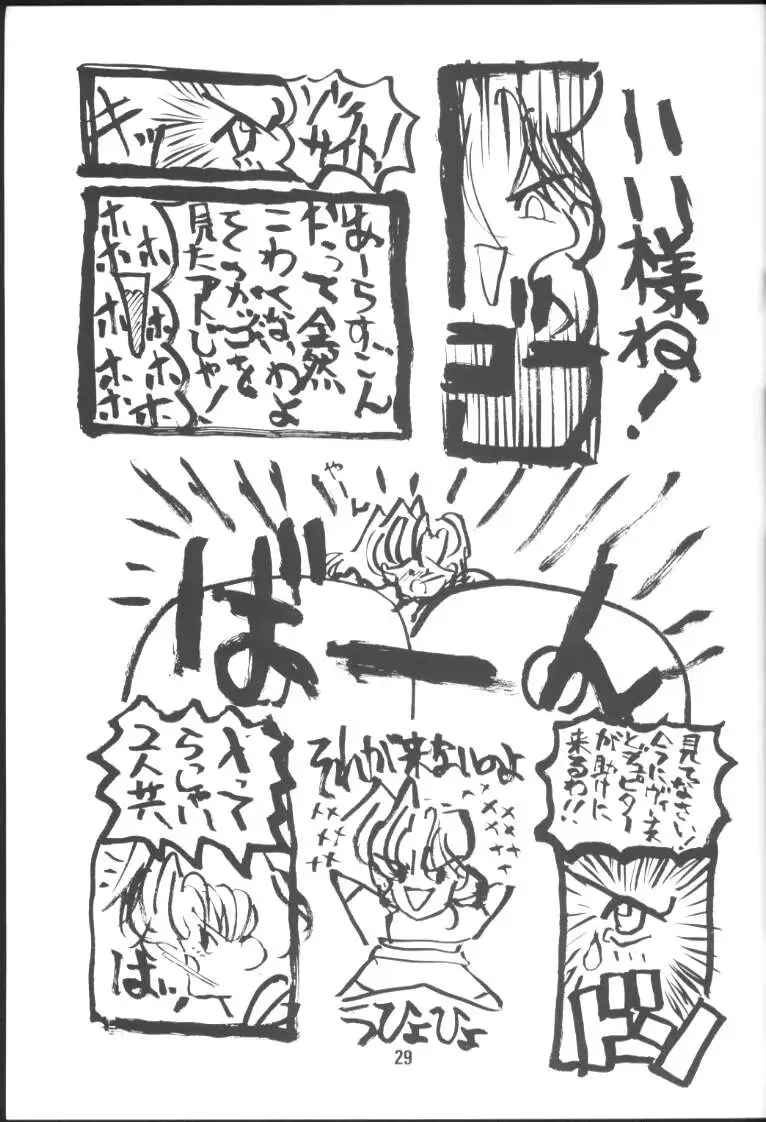 いい様ね！
ゾイサイト！
キッ
あーらすごん
だって全然
こわくないわよ
そっがゞを
見たアトじゃ！
ホホホホホホ
ホホホホホホ
やーん
ばーん
見てなさい！
今にヴィーナス
とジュピター
が助けに
来るわ！！
それが来ないのよ
うひょひょ
入って
らっしゃい
2人共
ばっ！
29